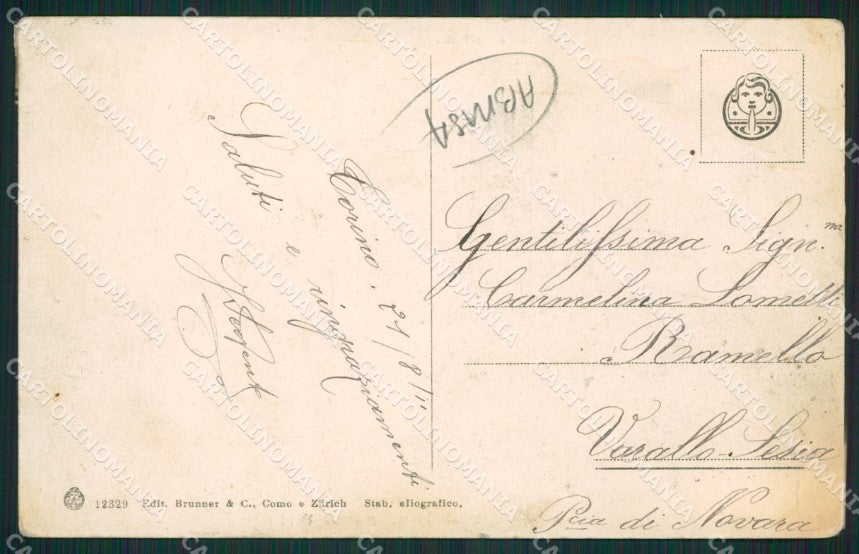 ABMSA
Torino, 21/8/11
Saluti e ringraziamenti
Gentilissima Sign.na
Carmelina Lometti
Ramello
Varallo-Sesia
Pcia di Novara
12329 Edit. Brunner & C., Como e Zürich Stab. eliografico.
CARTOLINOMANIA